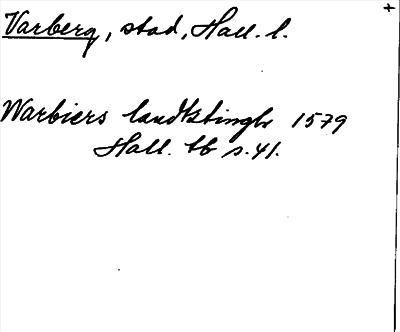 Varberg, stad, Hall. l.
Warbiers landtztingh 1579
Hall. tb s. 41.